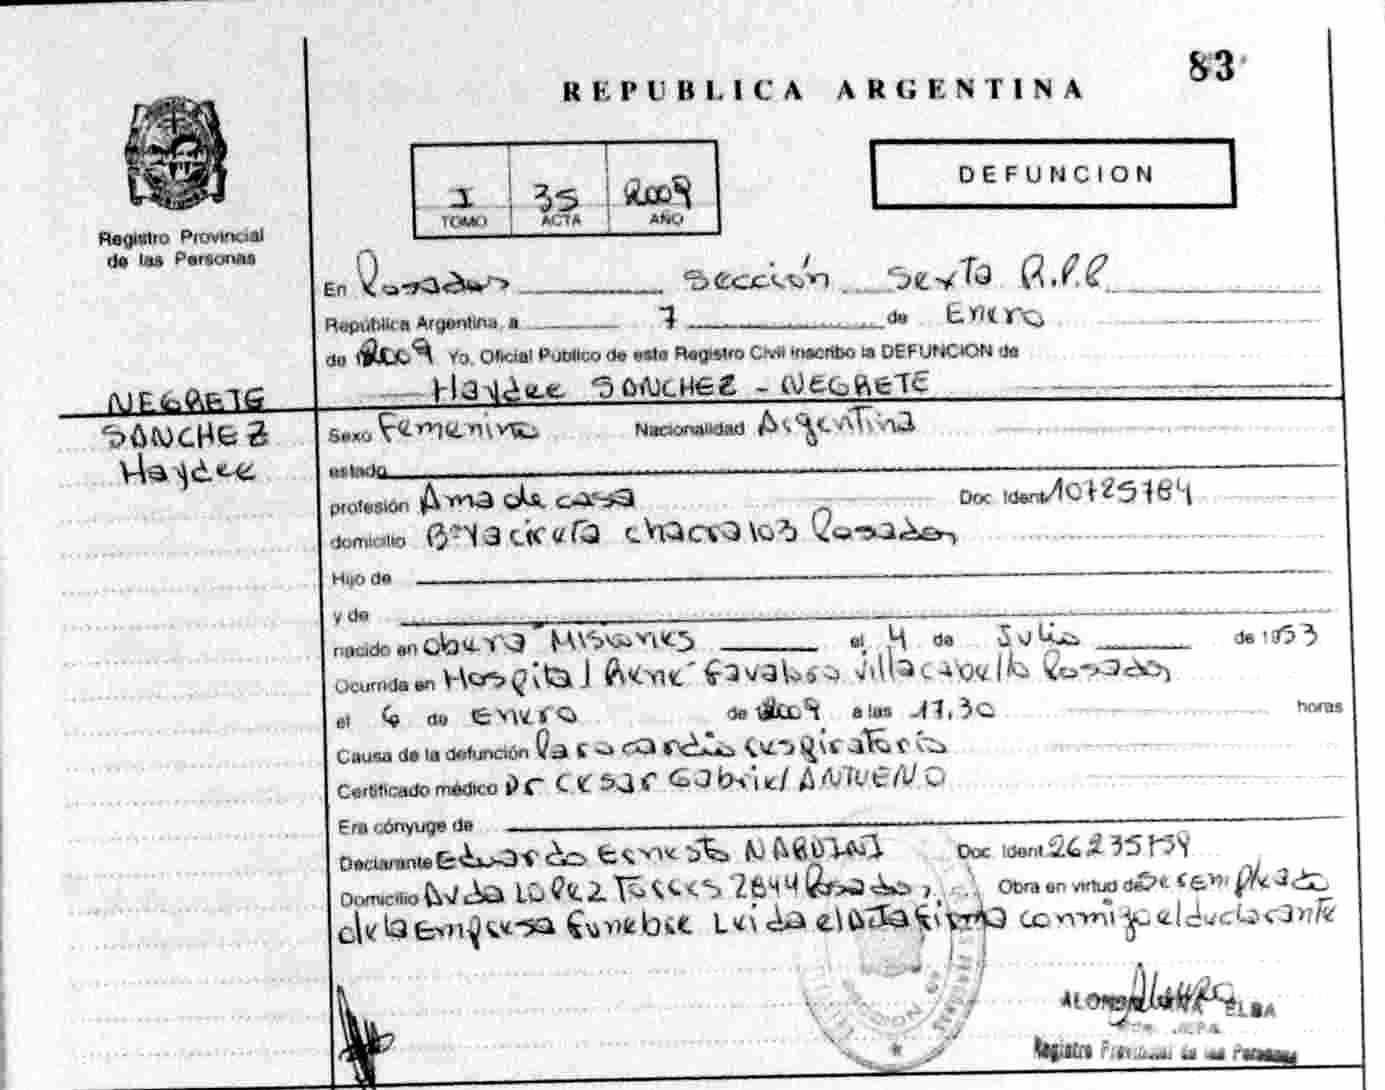 83
REPUBLICA ARGENTINA
I 35 2009
TOMO ACTA AÑO
DEFUNCION
Registro Provincial
de las Personas
En Posadas sección sexta R.P.P.
República Argentina, a 7 de Enero
de 2009 Yo, Oficial Público de este Registro Civil inscribo la DEFUNCION de
Haydee SANCHEZ - NEGRETE
NEGRETE
SANCHEZ
Haydee
Sexo Femenino Nacionalidad Argentina
estado
profesión Ama de casa Doc. Ident 10725784
domicilio Bº Yacireta chacra 103 Posadas
Hijo de
y de
nacido en Obera Misiones el 4 de Julio de 1953
Ocurrida en Hospital Rene Favaloro villa cabello Posadas
el 6 de Enero de 2009 a las 17,30 horas
Causa de la defunción Paro cardio respiratorio
Certificado médico Dr Cesar Gabriel ANTUENO
Era cónyuge de
Declarante Eduardo Ernesto Doc. Ident. 26235759
Domicilio Avda Lopez Torres 2844 Posadas, Obra en virtud de
de la Empresa funebre Leida el Acta firma conmigo el declarante
ELBA
Registro Provincial de las Personas